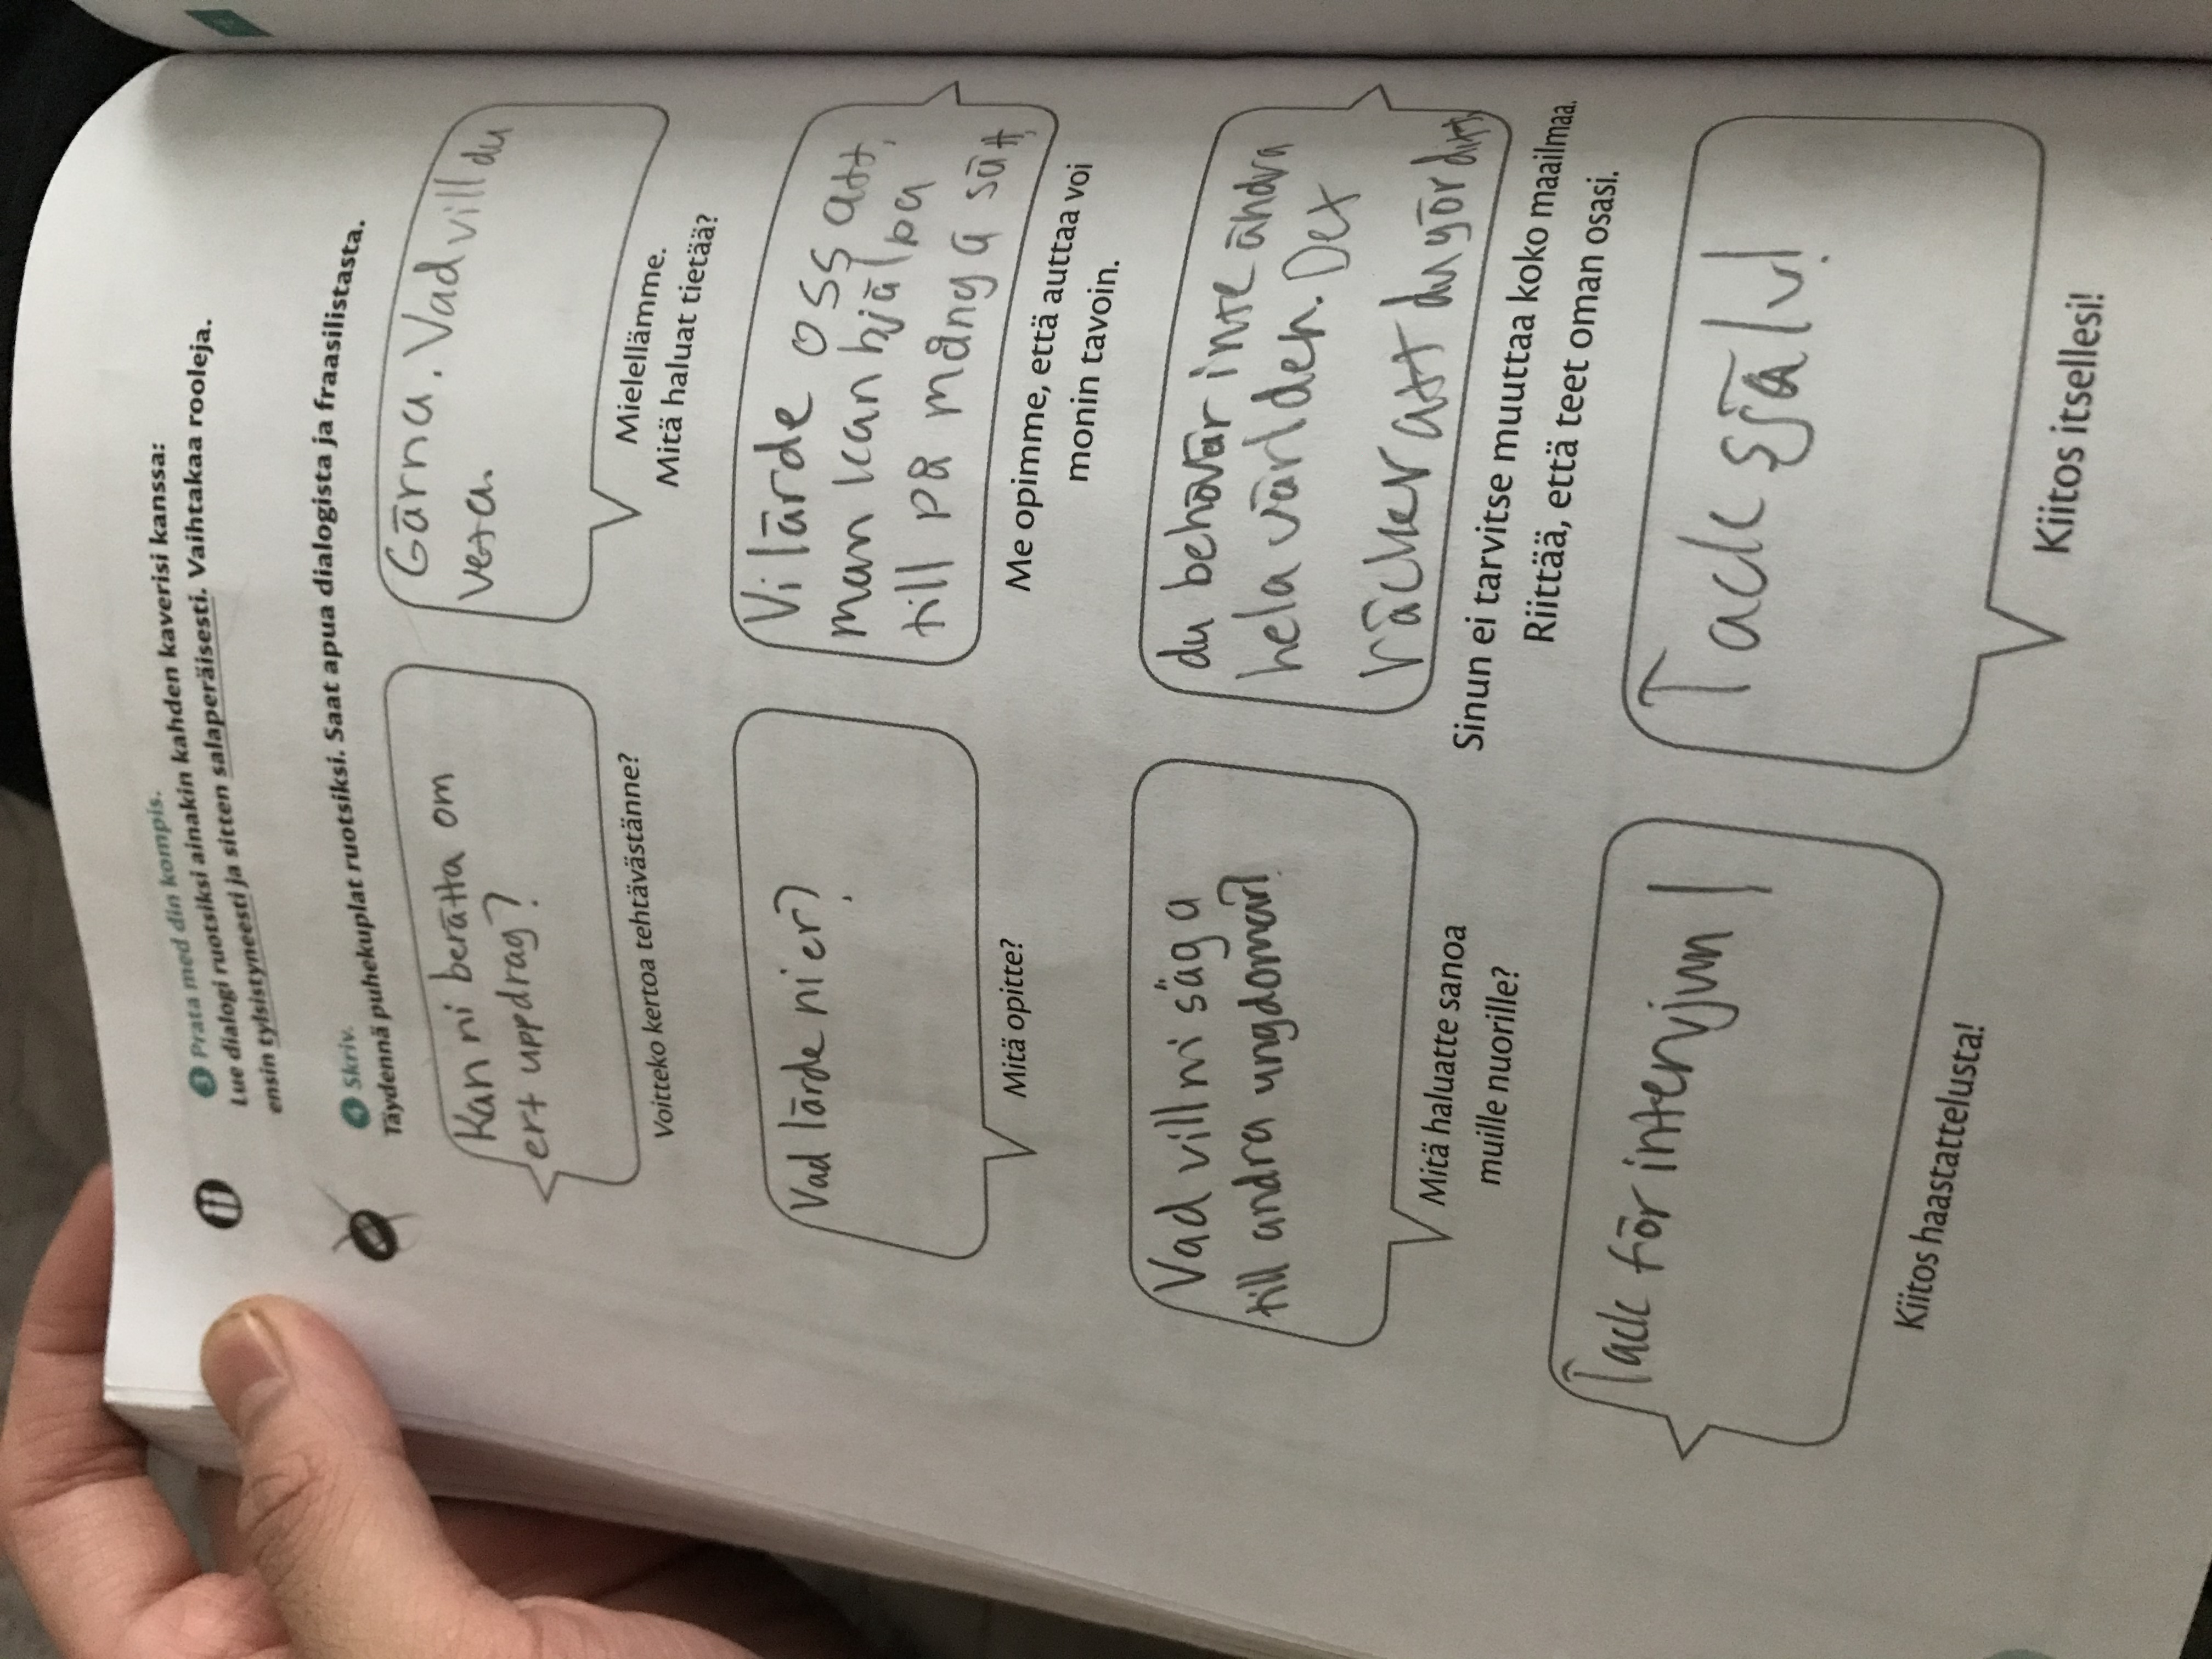 3 Prata med din kompis.
Lue dialogi ruotsiksi ainakin kahden kaverisi kanssa:
ensin tylsistyneesti ja sitten salaperäisesti. Vaihtakaa rooleja.
4 Skriv.
Täydennä puhekuplat ruotsiksi. Saat apua dialogista ja fraasilistasta.
Kan ni berätta om
ert uppdrag?
Voitteko kertoa tehtävästänne?
Gärna. Vad vill du
veta.
Mielellämme.
Mitä haluat tietää?
Vad lärde ni er?
Mitä opitte?
Vi lärde oss att,
man kan hjälpa
till på många sätt,
Me opimme, että auttaa voi
monin tavoin.
Vad vill ni säga
till andra ungdomar?
Mitä haluatte sanoa
muille nuorille?
du behövär inte ändra
hela världen. Det
räcker att du gör ditt,
Sinun ei tarvitse muuttaa koko maailmaa.
Riittää, että teet oman osasi.
Tack för intervjun!
Kiitos haastattelusta!
Tack själv!
Kiitos itsellesi!